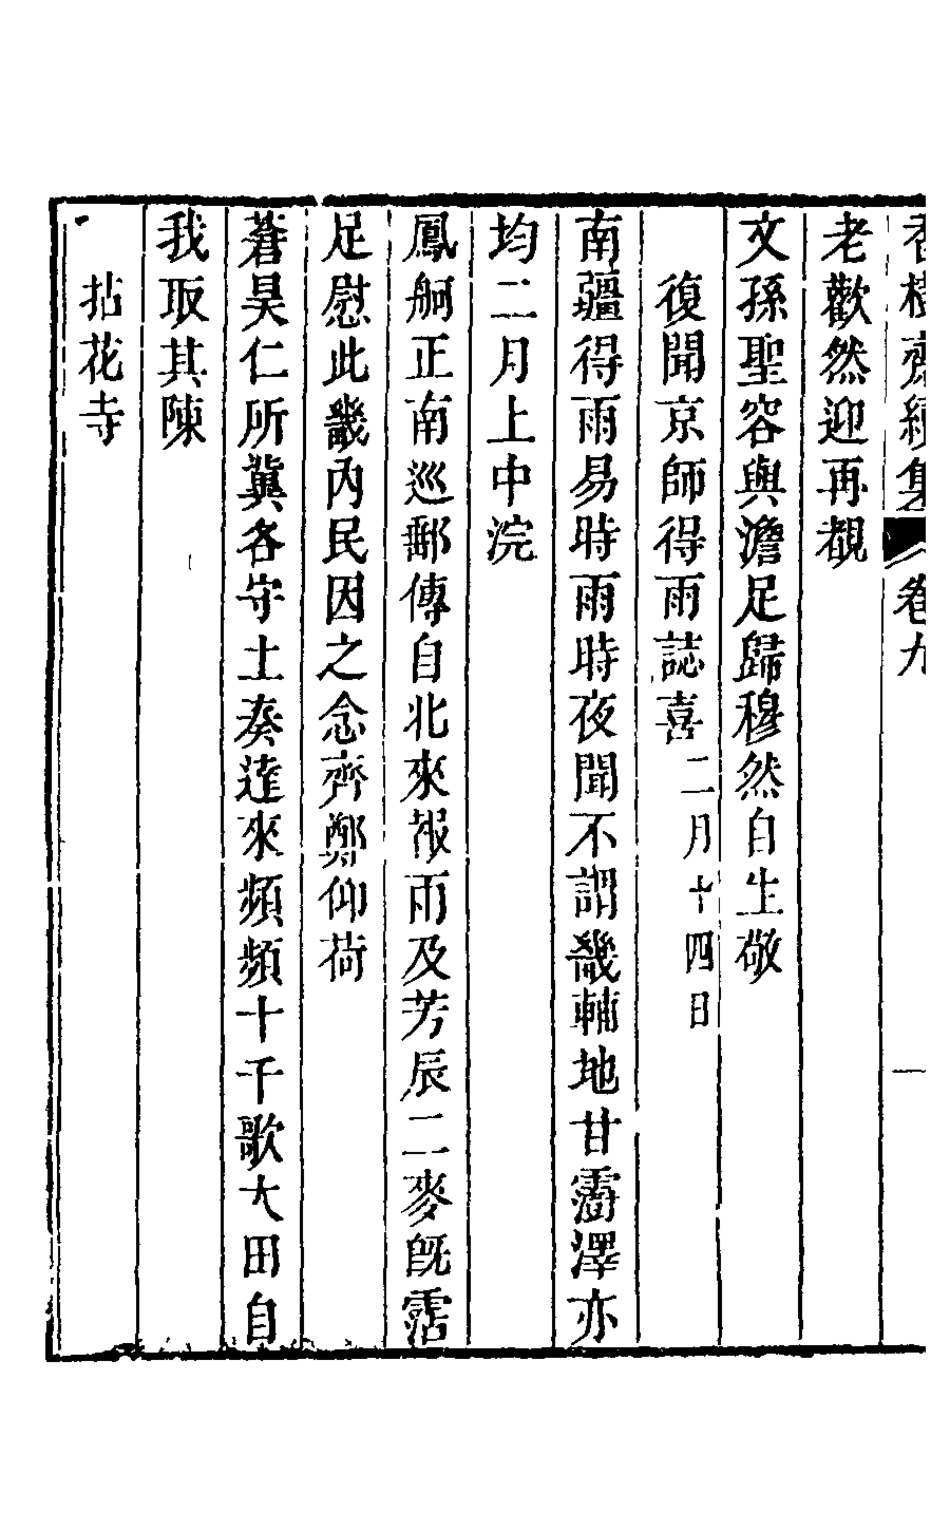 香樹齋續集 卷九 一
老歡然迎再覩
文孫聖容與澹足歸穆然自生敬
復聞京師得雨誌喜二月十四日
南疆得雨易時雨時夜聞不謂畿輔地甘霔澤亦
均二月上中浣
鳳舸正南巡郵傳自北來報雨及芳辰二麥旣霑
足慰此畿內民因之念齊鄭仰荷
蒼昊仁所冀各守土奏達來頻頻十千歌大田自
我取其陳
拈花寺